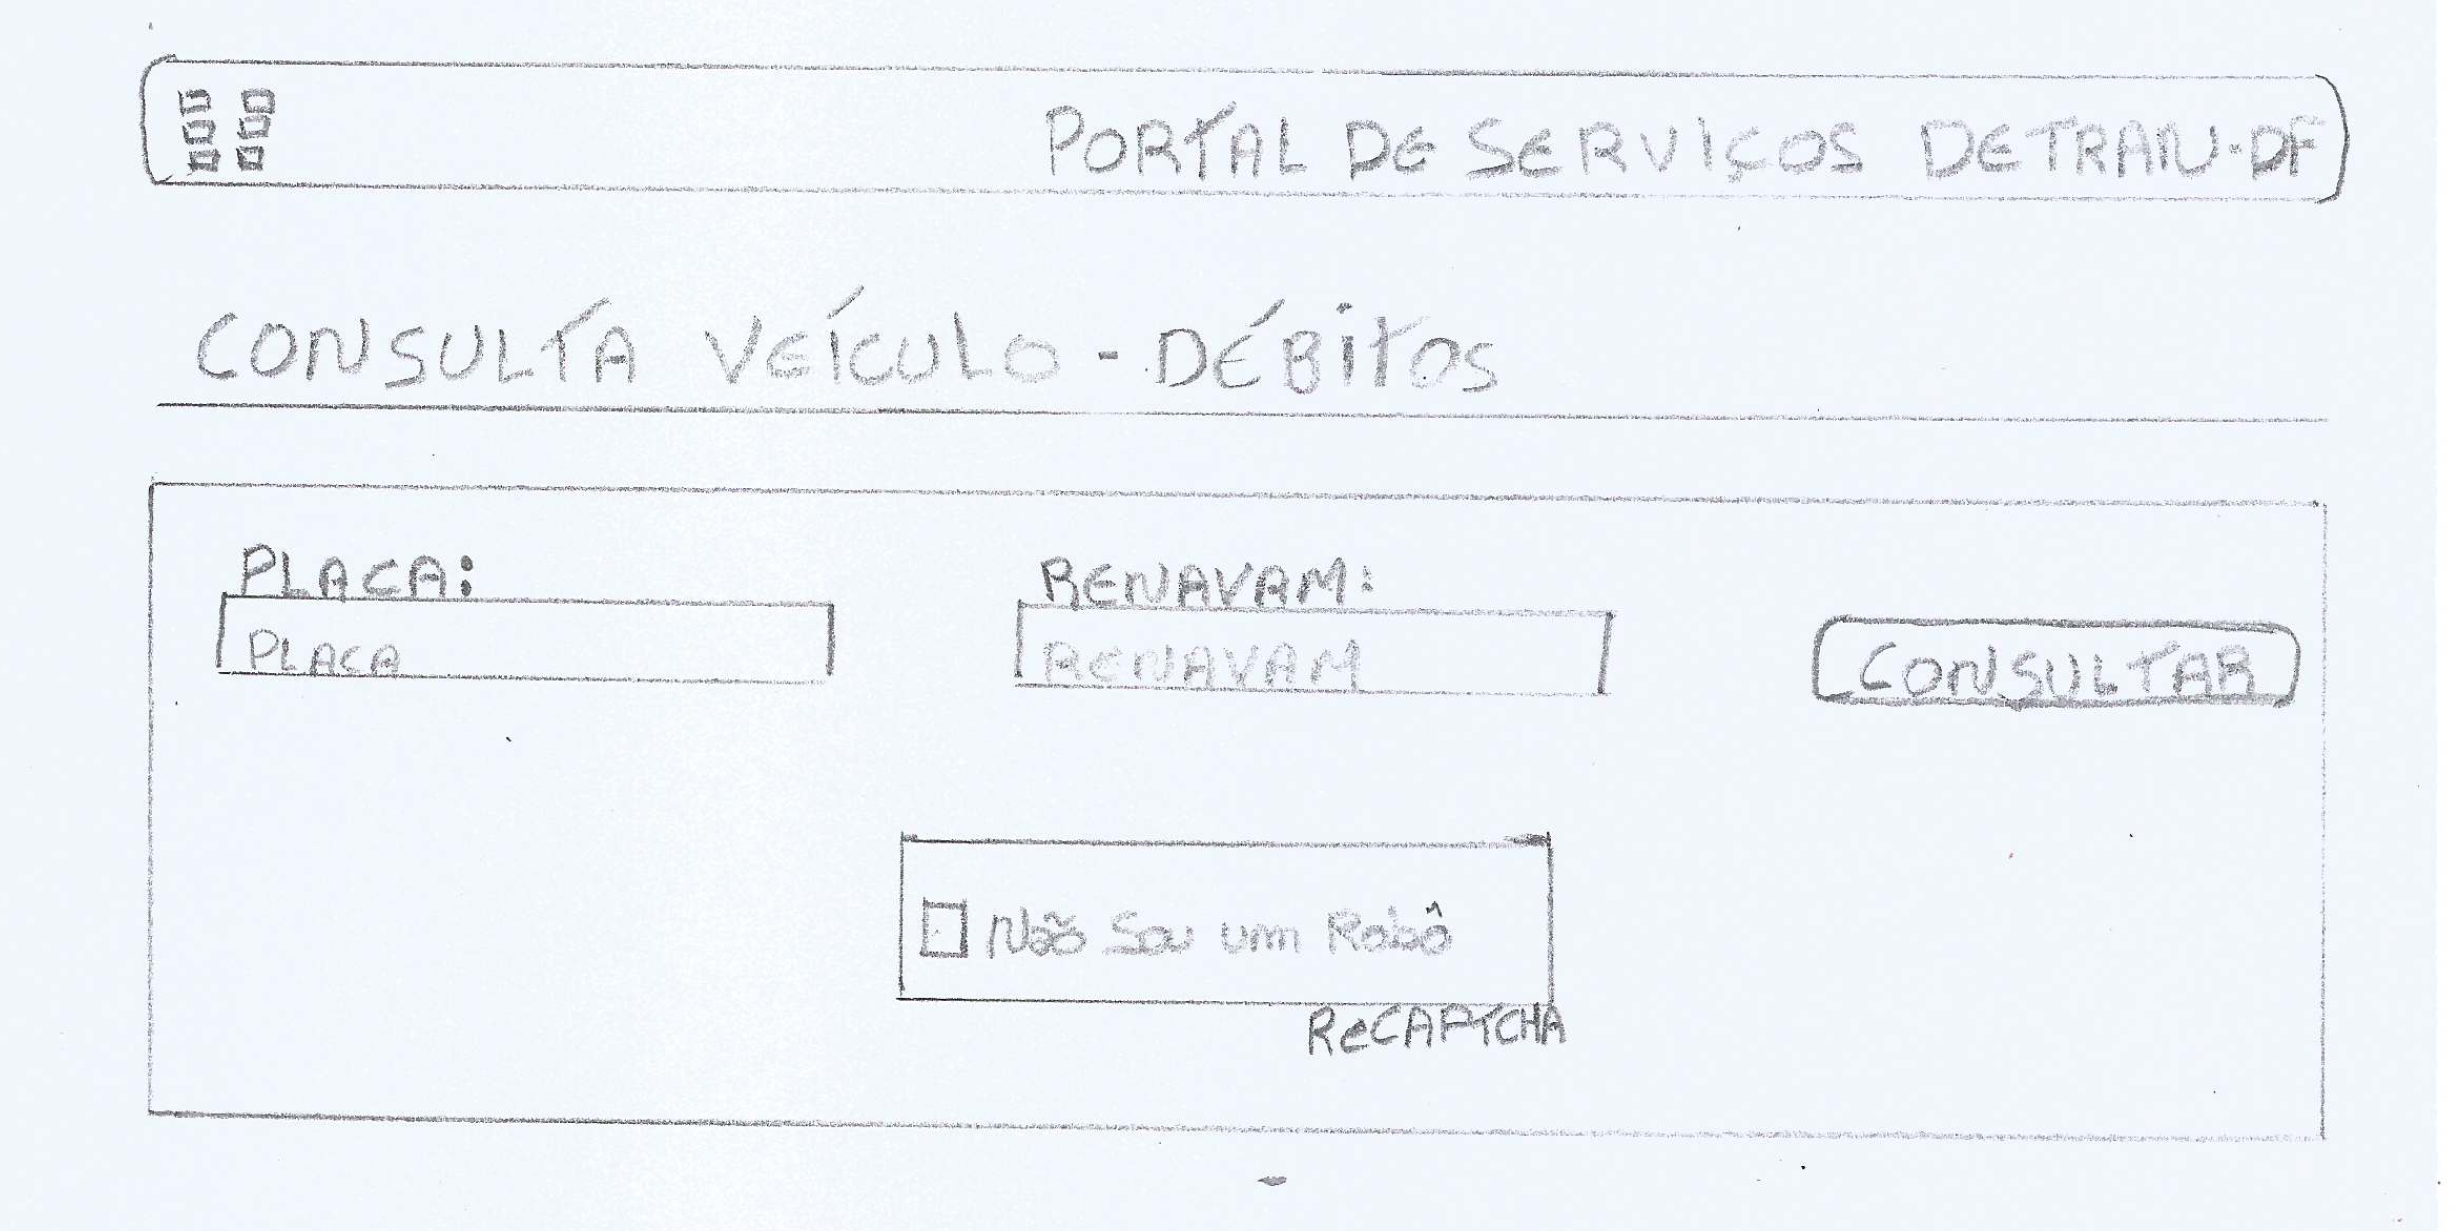 PORTAL DE SERVIÇOS DETRAN-DF
CONSULTA VEÍCULO - DÉBITOS
PLACA:
RENAVAM:
PLACA
RENAVAM
CONSULTAR
Não Sou um Robô
ReCAPTCHA